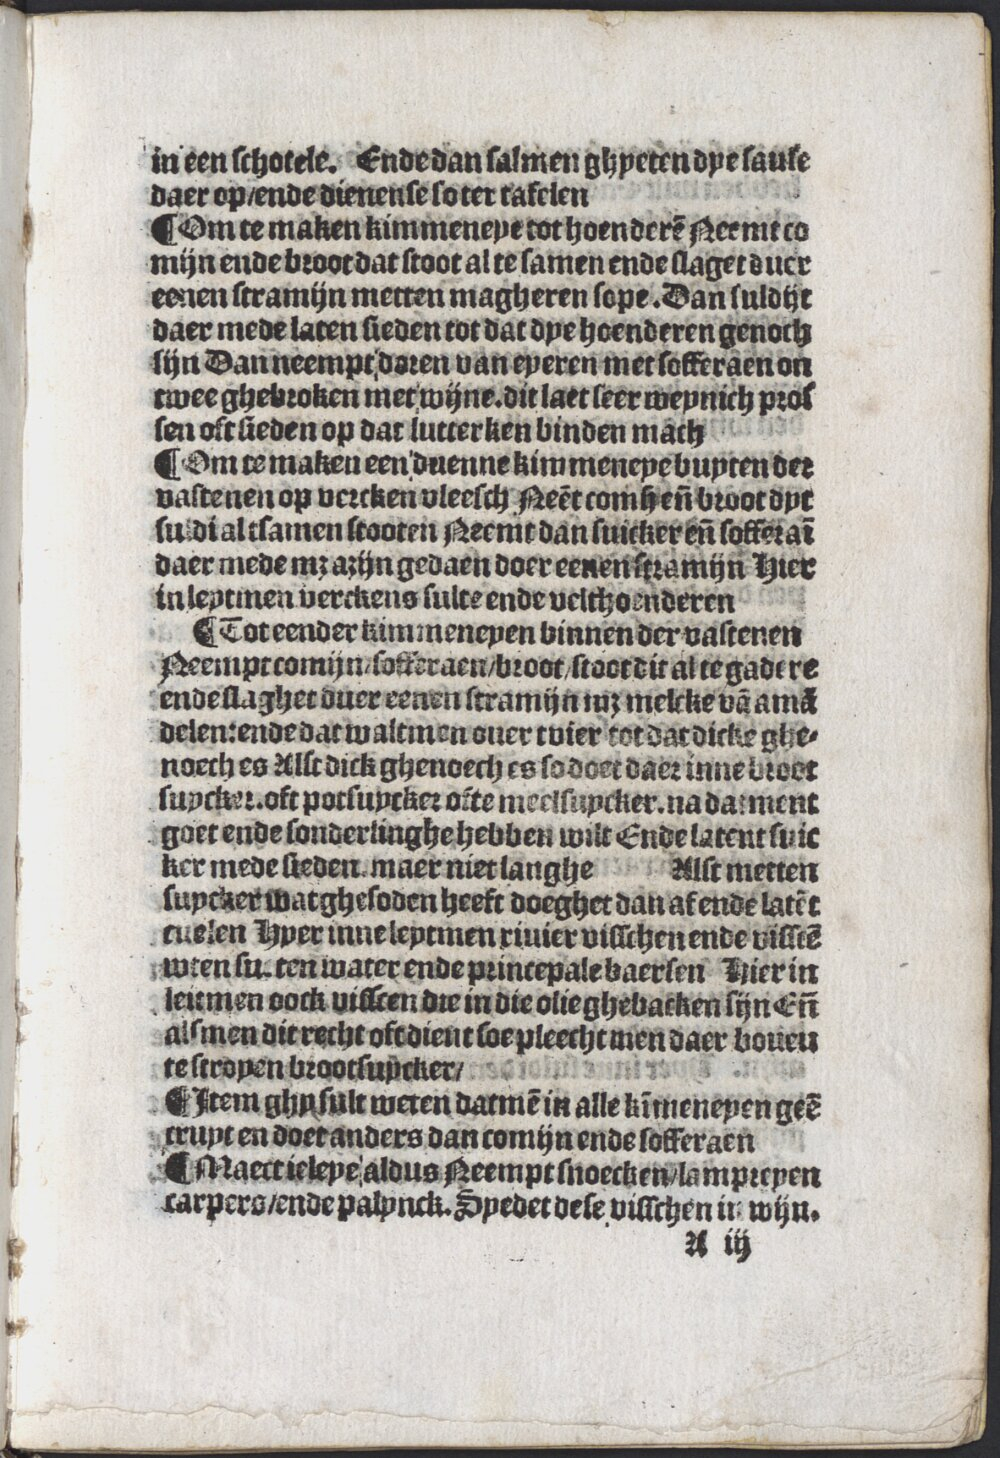 in een schotele. Ende dan salmen ghyeten dye sause
daer op/ende dienense so ter tafelen
¶Om te maken kimmeneye tot hoenderẽ Neemt co
mijn ende broot dat stoot al te samen ende slaget duer
eenen stramijn metten magheren sope. Dan suldijt
daer mede laten sieden tot dat dye hoenderen genoch
sijn Dan neempt doren van eyeren met sofferaen on
twee ghebroken met wijne. dit laet seer weynich pros
sen oft sieden op dat lutterken binden mach
¶Om te maken een duenne kimmeneye buyten der
vastenen op vercken vleesch Neẽt comijn eñ broot dyt
suldi al tsamen stooten Neemt dan suicker eñ sofferaĩ
daer mede mz azijn gedaen doer eenen stramijn Hier
in leytmen verckens sulte ende velthoenderen
¶Tot eender kimmeneyen binnen der vastenen
Neempt comijn/sofferaen/broot/stoot dit al te gadere
ende slaghet duer eenen stramijn mz melcke vã amã
delen: ende dat walmen ouer tvier tot dat dicke ghe-
noech es Alst dick ghenoech es so doet daer inne broot
suycker. oft potsuycker ofte meelsuycker. na datment
goet ende sonderlinghe hebben wilt Ende latent suic
ker mede sieden. maer niet langhe Alst metten
suycker wat ghesoden heeft doeghet dan af ende latẽt
cuelen Hyer inne leytmen rivier visschen ende visscẽ
wten su ten water ende princepale baersen Hier in
leitmen oock visscen die in die olie ghebacken sijn Eñ
alsmen dit recht oft dient soe pleecht men daer bouen
te stroyen brootsuycker/
¶Item ghy sult weten datmẽ in alle kĩmeneyen geẽ
cruyt en doet anders dan comijn ende sofferaen
¶Maect ieleye aldus Neempt snoecken/lampreyen
carpers/ende palynck. Syedet dese visschen in wijn.
A iij